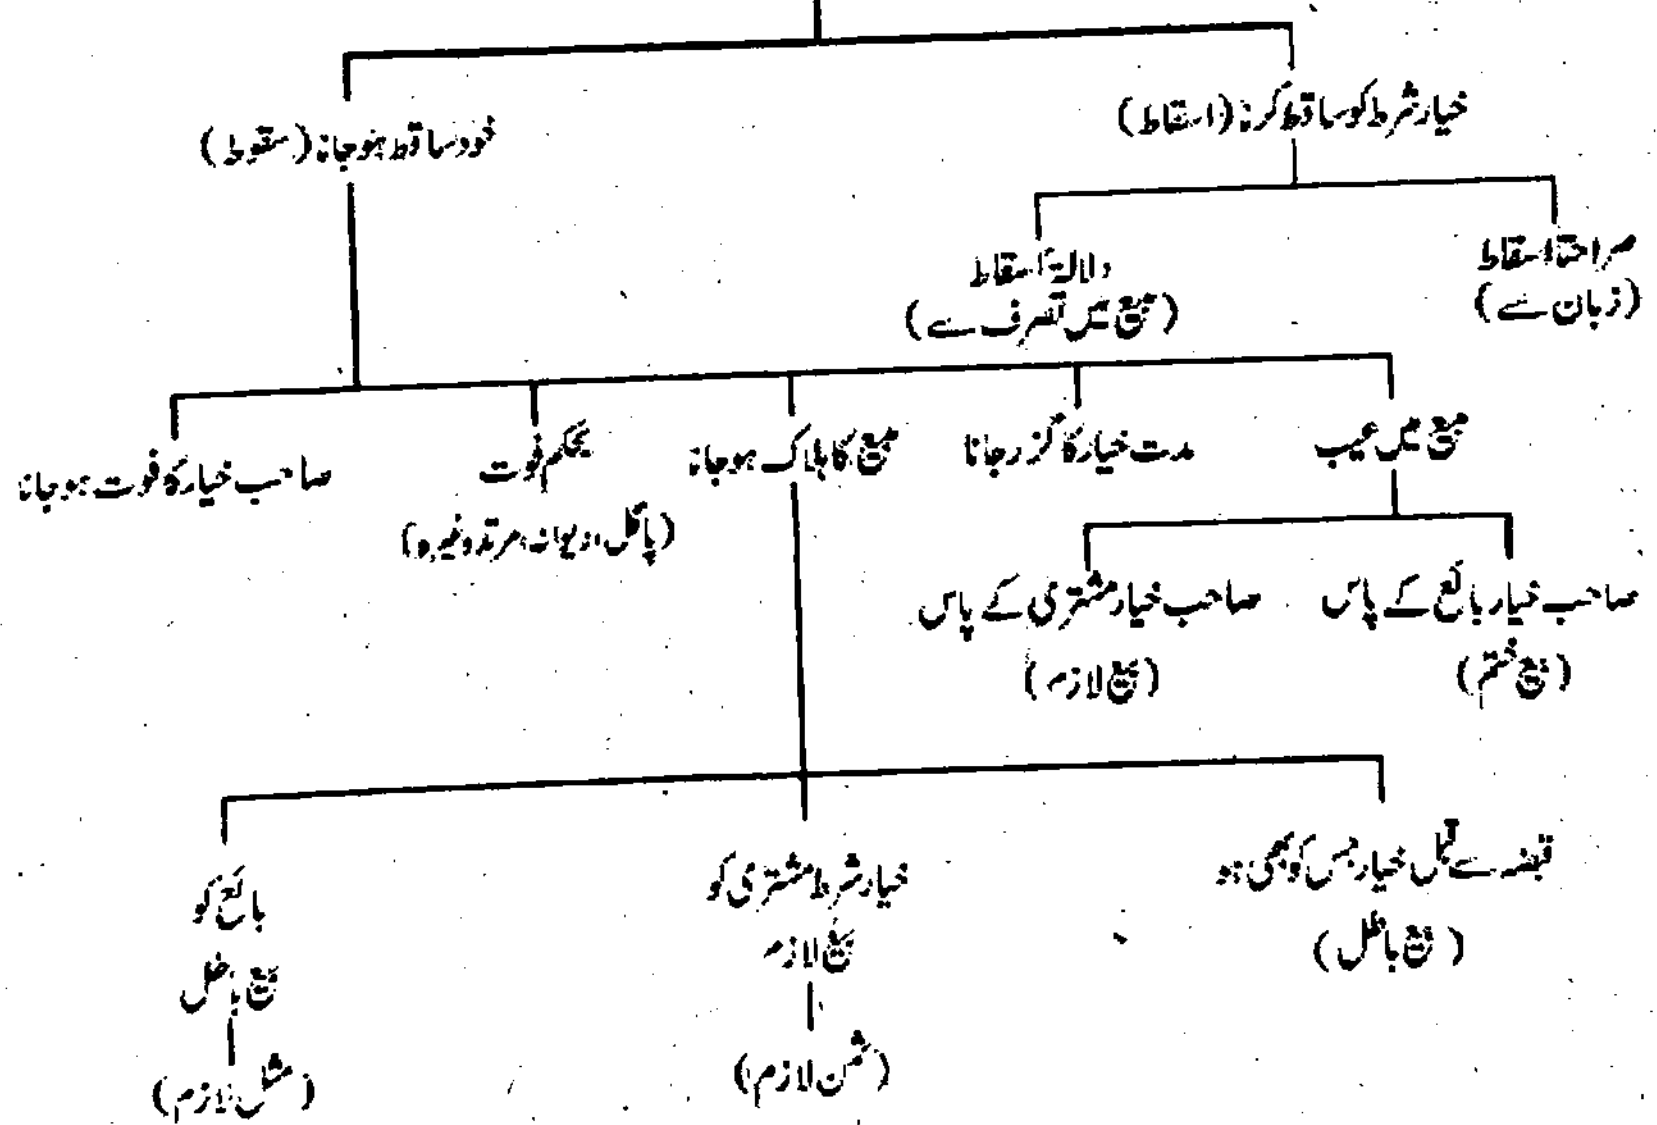 خیار شرط کو ساقط کرنا (اسقاط)
خود ساقط ہو جانا (سقوط)
صراحتاً اسقاط
(زبان سے)
دلالۃً اسقاط
(مبیع میں تصرف سے)
مبیع میں عیب
مدت خیار کا گزر جانا
مبیع کا ہلاک ہو جانا
بحکم فوت
(پاگل، دیوانہ، مرتد وغیرہ)
صاحب خیار کا فوت ہو جانا
صاحب خیار بائع کے پاس
(بیع ختم)
صاحب خیار مشتری کے پاس
(بیع لازم)
قبضہ سے قبل خیار جس کو بھی ہو
(بیع باطل)
خیار شرط مشتری کو
بیع لازم
(ثمن لازم)
بائع کو
بیع باطل
(مثل لازم)